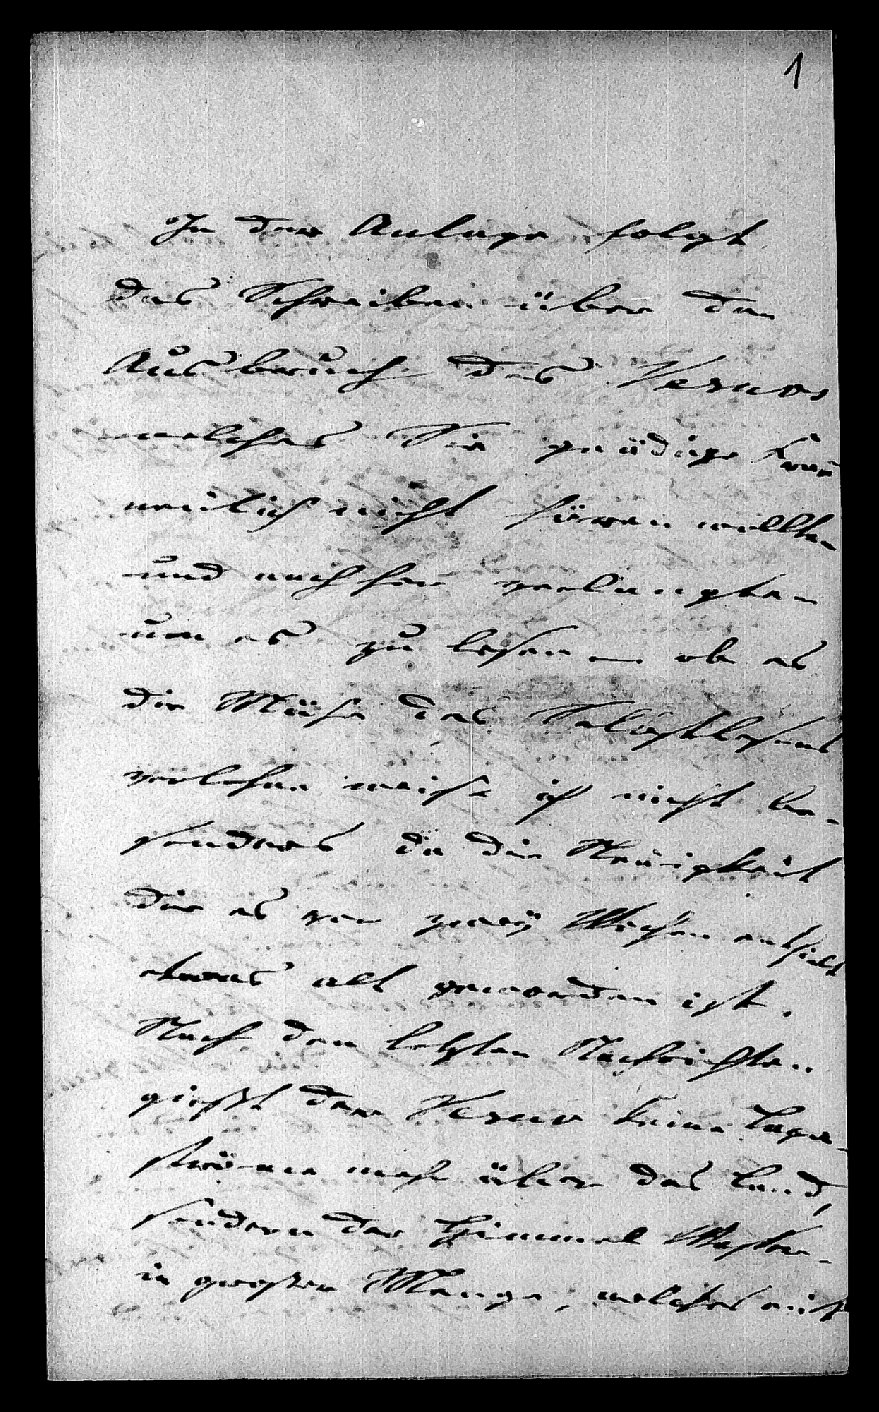 1
In der Anlage folgt
das Schreiben über den
Ausbruch des Vesuvs
welches Sie gnädige Frau
neulich nicht hören wollten
und nachher verlangten
um es zu lesen — ob es
die Mühe des Selbstlesens
verlohne weiß ich nicht be-
sonders da die Neuigkeit
die es vor zwey Wochen enthielt
etwas alt geworden ist.
Nach den letzten Nachrichten
gießt der Vesuv keine Lava-
ströme mehr über das Land,
sondern der Himmel Wasser
in großer Menge, welches mich